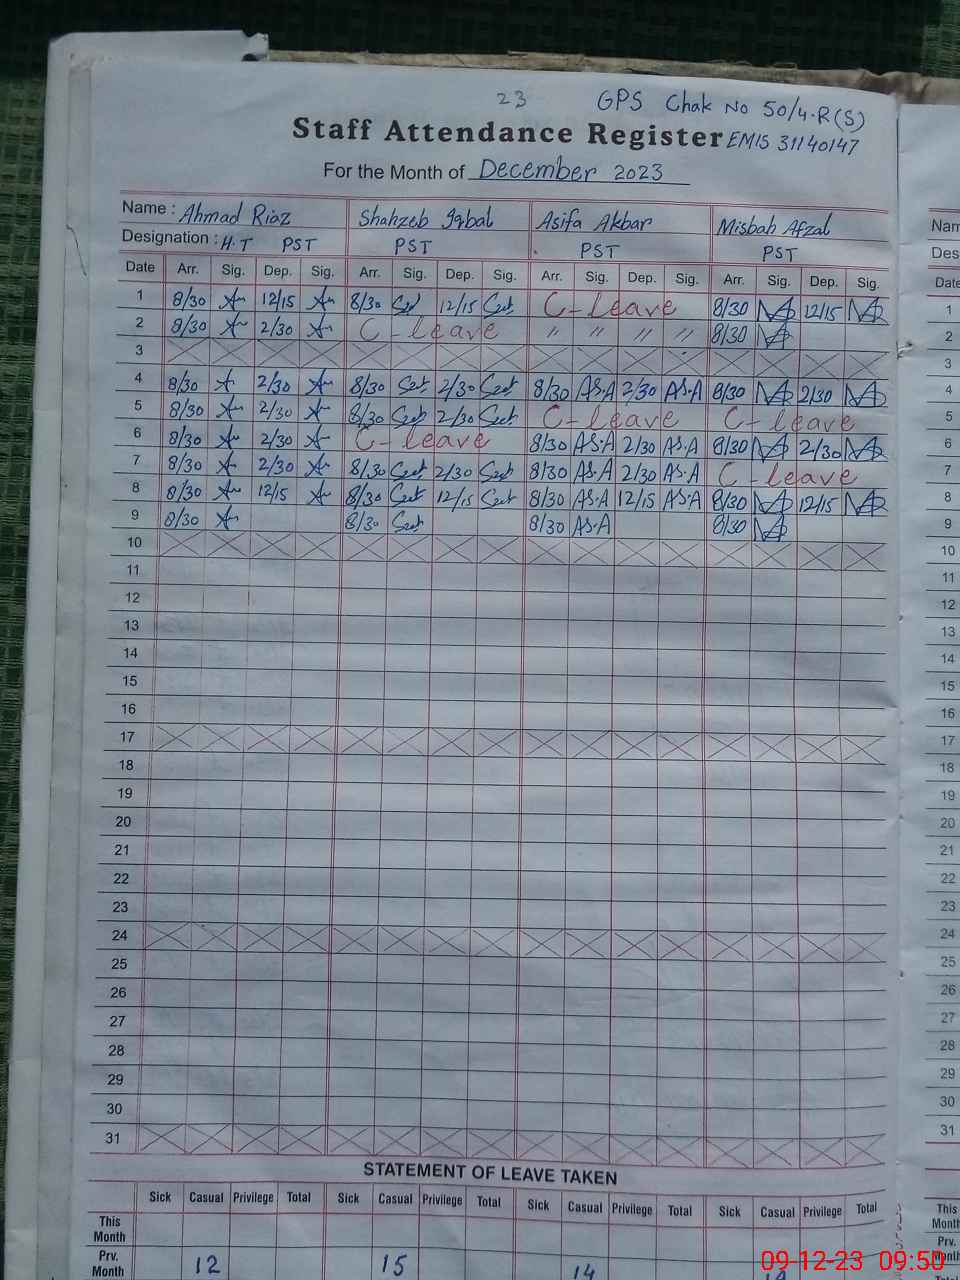 23 GPS Chak No 50/4-R(S)
Staff Attendance Register EMIS 31140147
For the Month of December 2023
Name : Ahmad Riaz Shahzeb Iqbal Asifa Akbar Misbah Afzal Nam
Designation : H.T PST PST PST PST Des
Date Arr. Sig. Dep. Sig. Arr. Sig. Dep. Sig. Arr. Sig. Dep. Sig. Arr. Sig. Dep. Sig. Date
1 8/30 12/15 8/30 12/15 C-leave 8/30 12/15 1
2 8/30 2/30 C-leave " " " " 8/30 2
3 3
4 8/30 2/30 8/30 2/30 8/30 AS.A 2/30 AS.A 8/30 2/30 4
5 8/30 2/30 8/30 2/30 C-leave C-leave 5
6 8/30 2/30 C-leave 8/30 AS.A 2/30 AS.A 8/30 2/30 6
7 8/30 2/30 8/30 2/30 8/30 AS.A 2/30 AS.A C-leave 7
8 8/30 12/15 8/30 12/15 8/30 AS.A 12/15 AS.A 8/30 12/15 8
9 8/30 8/30 8/30 AS.A 8/30 9
10 10
11 11
12 12
13 13
14 14
15 15
16 16
17 17
18 18
19 19
20 20
21 21
22 22
23 23
24 24
25 25
26 26
27 27
28 28
29 29
30 30
31 31
STATEMENT OF LEAVE TAKEN
Sick Casual Privilege Total Sick Casual Privilege Total Sick Casual Privilege Total Sick Casual Privilege Total
This Month This Month
Prv. Month 12 15 14 Prv. Month
09-12-23 09:50